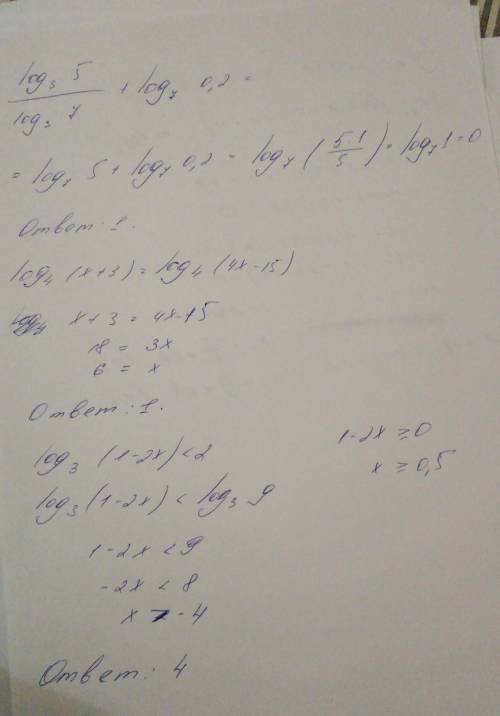 log₃ 5 / log₃ 7 + log₇ 0,2 =
= log₇ 5 + log₇ 0,2 = log₇ (5·1/5) = log₇ 1 = 0
Ответ: 1.
log₄ (x+3) = log₄ (4x-15)
x+3 = 4x-15
18 = 3x
6 = x
Ответ: 1.
log₃ (1-2x) < 2
1-2x ≥ 0
x ≥ 0,5
log₃ (1-2x) < log₃ 9
1-2x < 9
-2x < 8
x > -4
Ответ: 4